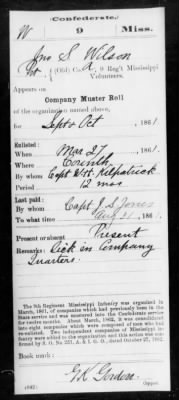 Confederate.
W 9 Miss.
Jno S. Wilson
Pvt (Old) Co. , 9 Reg't Mississippi
Volunteers.
Appears on
Company Muster Roll
of the organization named above,
for Sept & Oct , 1861.
Enlisted:
When Mar 27 , 1861.
Where Corinth
By whom Capt W.H. Kilpatrick
Period 12 mos
Last paid:
By whom Capt J. S. Jones
To what time Aug 31 , 1861.
Present or absent Present
Remarks: Sick in Company
Quarters.
The 9th Regiment Mississippi Infantry was organized in
March, 1861, of companies which had previously been in the
State service and was mustered into the Confederate service
for twelve months. About March, 1862, it was consolidated
into eight companies which were composed of men who had
re-enlisted. Two independent companies of Mississippi In-
fantry were added to the organization and this action was con-
firmed by S. O. No. 251, A. & I. G. O., dated October 27, 1862.
Book mark:
(642)
Copyist.